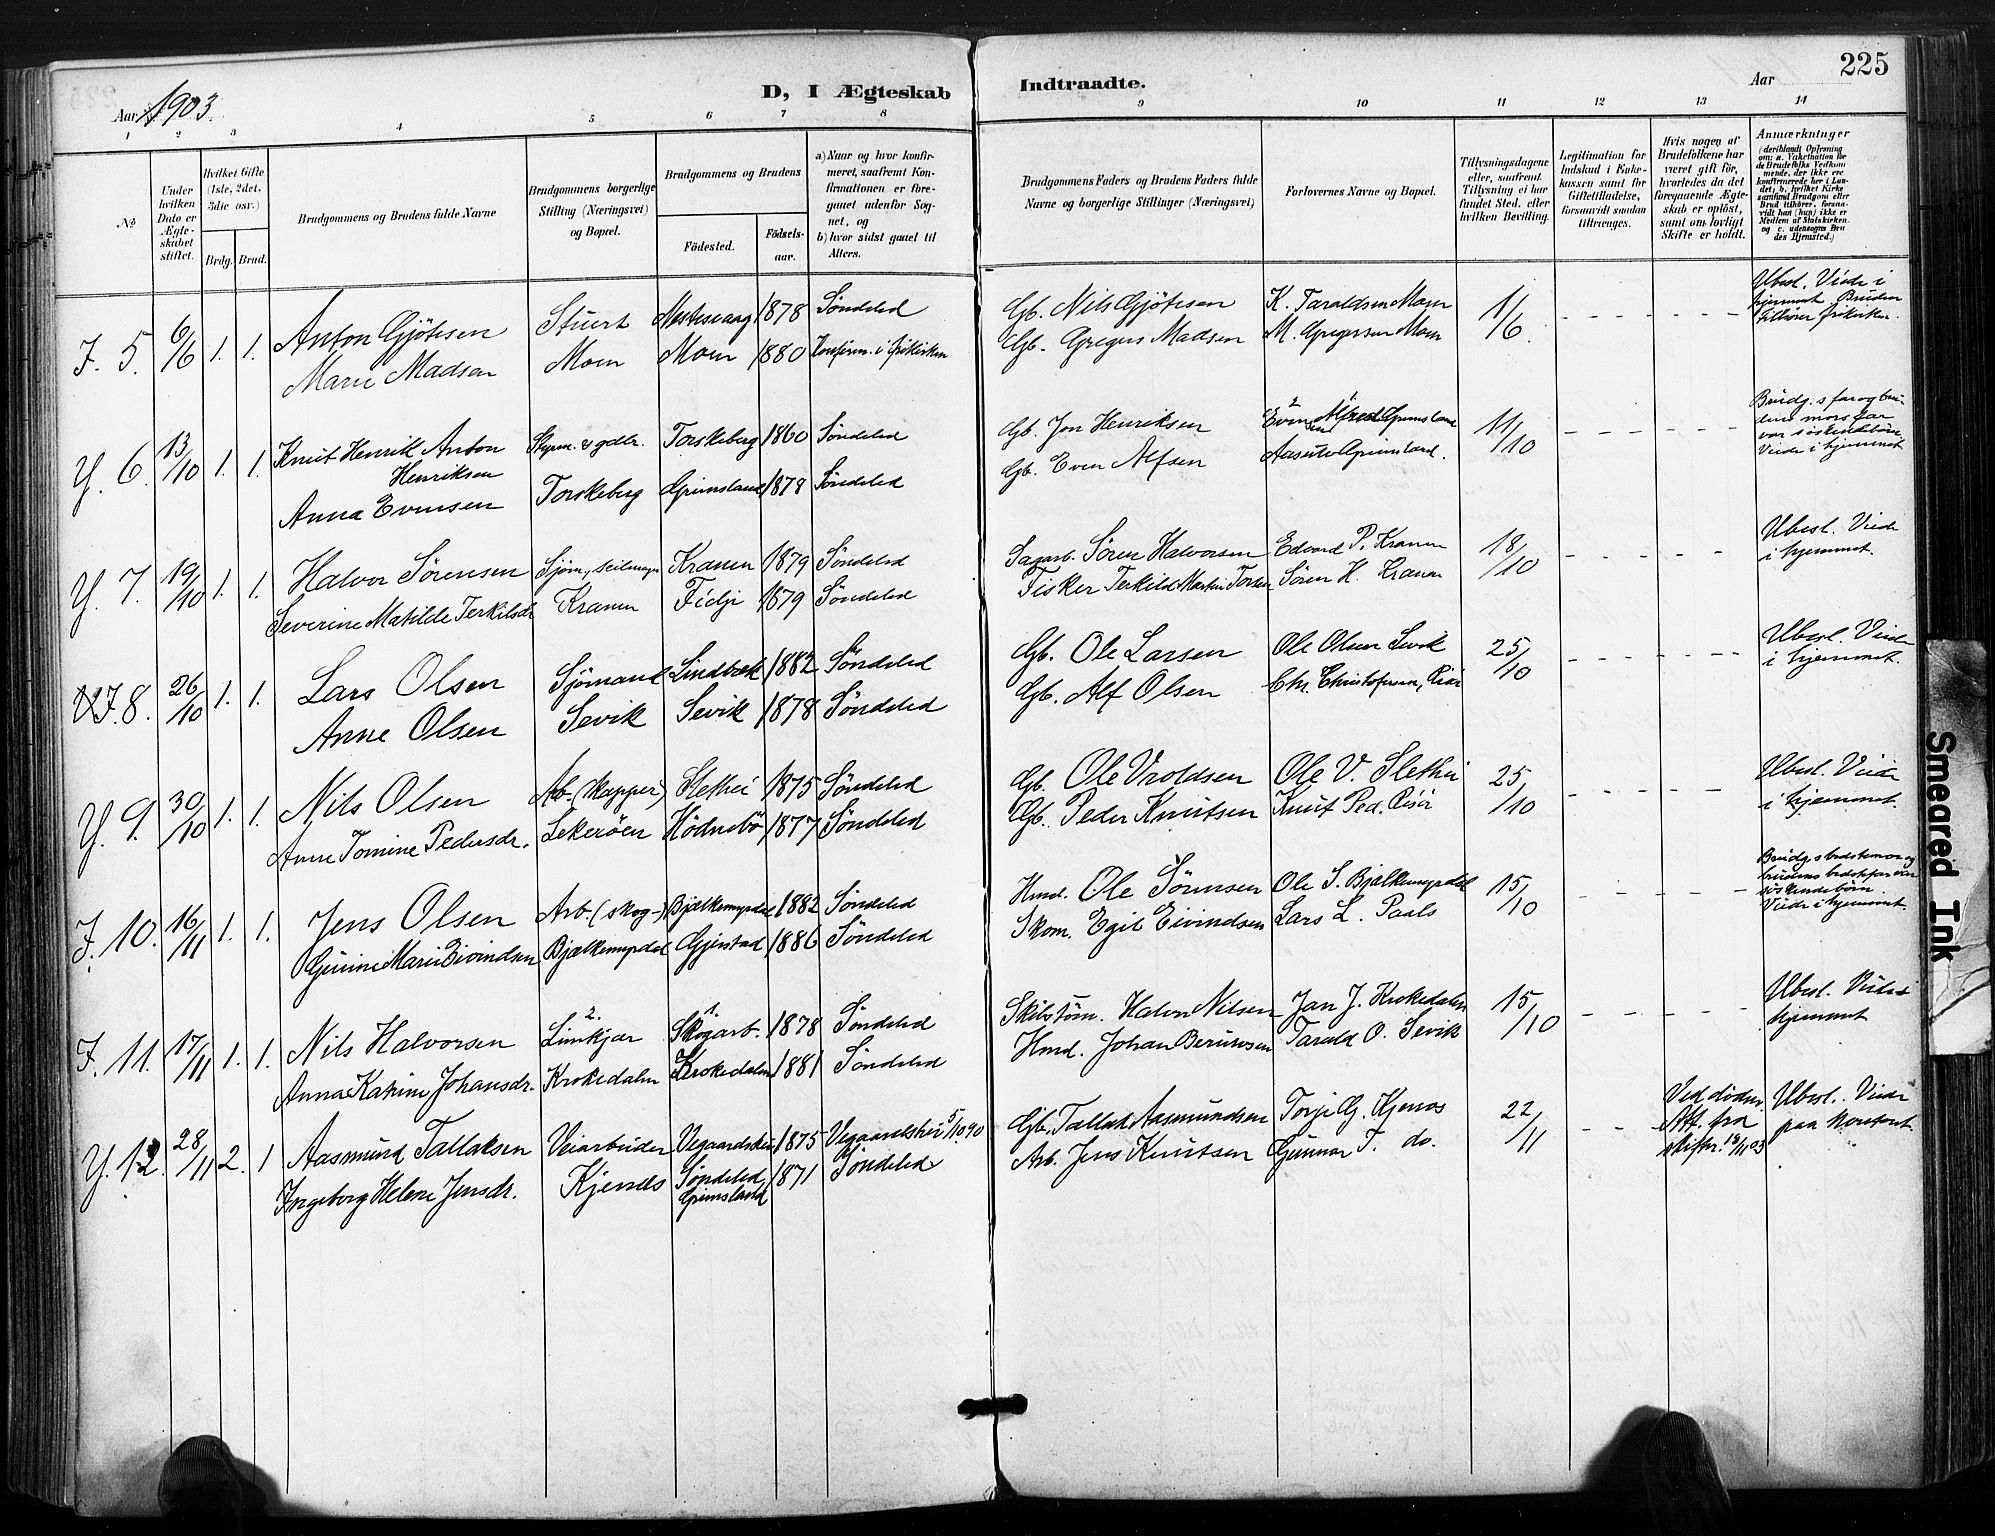 225
Aar 1903.
D, I Ægteskab Indtraadte.
Aar
1 2 3 4 5 6 7 8 9 10 11 12 13 14
No
Under hvilken Dato er Ægteskabet stiftet.
Hvilket Gifte (1ste, 2det, 3die osv.)
Brdg. Brud.
Brudgommens og Brudens fulde Navne
Brudgommens borgerlige Stilling (Næringsvei) og Bopæl.
Brudgommens og Brudens
Fødested. Fødselsaar.
a) Naar og hvor konfirmeret, saafremt Konfirmationen er foregaaet udenfor Sognet, og
b) hvor sidst gaaet til Alters.
Brudgommens Faders og Brudens Faders fulde Navne og borgerlige Stillinger (Næringsvei)
Forlovernes Navne og Bopæl.
Tillysningsdagene eller, saafremt Tillysning ei har fundet Sted, efter hvilken Bevilling.
Legitimation for Indskud i Enkekassen samt for Giftetilladelse, forsaavidt saadan tiltrænges.
Hvis nogen af Brudefolkene har været gift før, hvorledes da det foregaaende Ægteskab er opløst, samt om lovligt Skifte er holdt.
Anmærkninger (deriblandt Oplysning om: a. Vakcination for de Brudefolks Vedkommende, der ikke ere konfirmerede her i Landet; b. hvilket Kirkesamfund Brudgom eller Brud tilhører, forsaavidt han (hun) ikke er Medlem af Statskirken, og c. udensogns Brudes Hjemsted.)
F. 5. 6/6 1. 1. Anton Gjötisen Stuert 1878 Söndeled Gb. Nils Gjötisen K. Taraldsen Moen 1/6 Ubesl. Viede i hjemmet. Bruden tilhører frikirken.
Marie Madsen Moen Moen 1880 Konfirm. i frikirken Gb. Gregers Madsen M. Gregersen Moen
Y. 6. 13/10 1. 1. Knut Henrik Anton Henriksen Torskeberg 1860 Söndeled Gb. Jon Henriksen Alfred Grimsland 11/10 Brudg.s far og brudens morsfar var söskendebörn Viede i hjemmet
Anna Evensen Torskeberg Grimsland 1878 Söndeled Gb. Even Alfsen Grimsland.
Y. 7. 19/10 1. 1. Halvor Sörensen Kranen 1879 Söndeled Sagarb. Sören Halvorsen Edvard P. Kranen 18/10 Ubesl. Viede i hjemmet.
Severine Matilde Terkilsdr. Kranen Fidje 1879 Söndeled Fisker Terkild Martin Torsen Sören H. Kranen
F. 8. 26/10 1. 1. Lars Olsen Sjömand Lindbæk 1882 Söndeled Gb. Ole Larsen Ole Olsen Sevik 25/10 Ubesl. Viede i hjemmet.
Anne Olsen Sevik Sevik 1878 Söndeled Gb. Alf Olsen Chr. Christofersen, Risör
Y. 9. 30/10 1. 1. Nils Olsen Arb. (Kapper) Slethei 1875 Söndeled Gb. Ole Vroldsen Ole V. Slethei 25/10 Ubesl. Viede i hjemmet.
Anne Tomine Pedersdr. Lekeröen Hödnebö 1877 Söndeled Gb. Peder Knutsen Knut Ped. Risör
F. 10. 16/11 1. 1. Jens Olsen Arb. (skog-) Bjælkemyrdal 1882 Söndeled Hmd. Ole Sörensen Ole S. Bjælkemyrdal 15/10 Brudg.s bedstemor og brudens bedstefar var söskendebörn. Viede i hjemmet.
Gurine Marie Eivindsen Bjælkemyrdal Gjerstad 1886 Söndeled Skom. Egil Eivindsen Lars L. Paals
F. 11. 17/11 1. 1. Nils Halvorsen 2. Limkjær 1. Skogarb. 1878 Söndeled Skibstöm. Halvor Nilsen Jan J. Krokedalen 15/10 Ubesl. Viede i hjemmet
Anna Katrine Johansdr. Krokedalen Krokedalen 1881 Söndeled Hmd. Johan Berntsen Tarald O. Sevik
Y. 12. 28/11 2. 1 Aasmund Tallaksen Veiarbeider Vegaardshei 1875 Vegaardshei 5/10 90 Gb. Tallak Aasmundsen Torje G. Kjenes 22/11 Ved döden. Att. fra skiftr. 18/11 03 Ubesl. Viede paa kontoret.
Ingeborg Helene Jensdr. Kjenes Söndeled, Grimsland 1871 Söndeled Arb. Jens Knutsen Gunnar T. do.
Smeared Ink